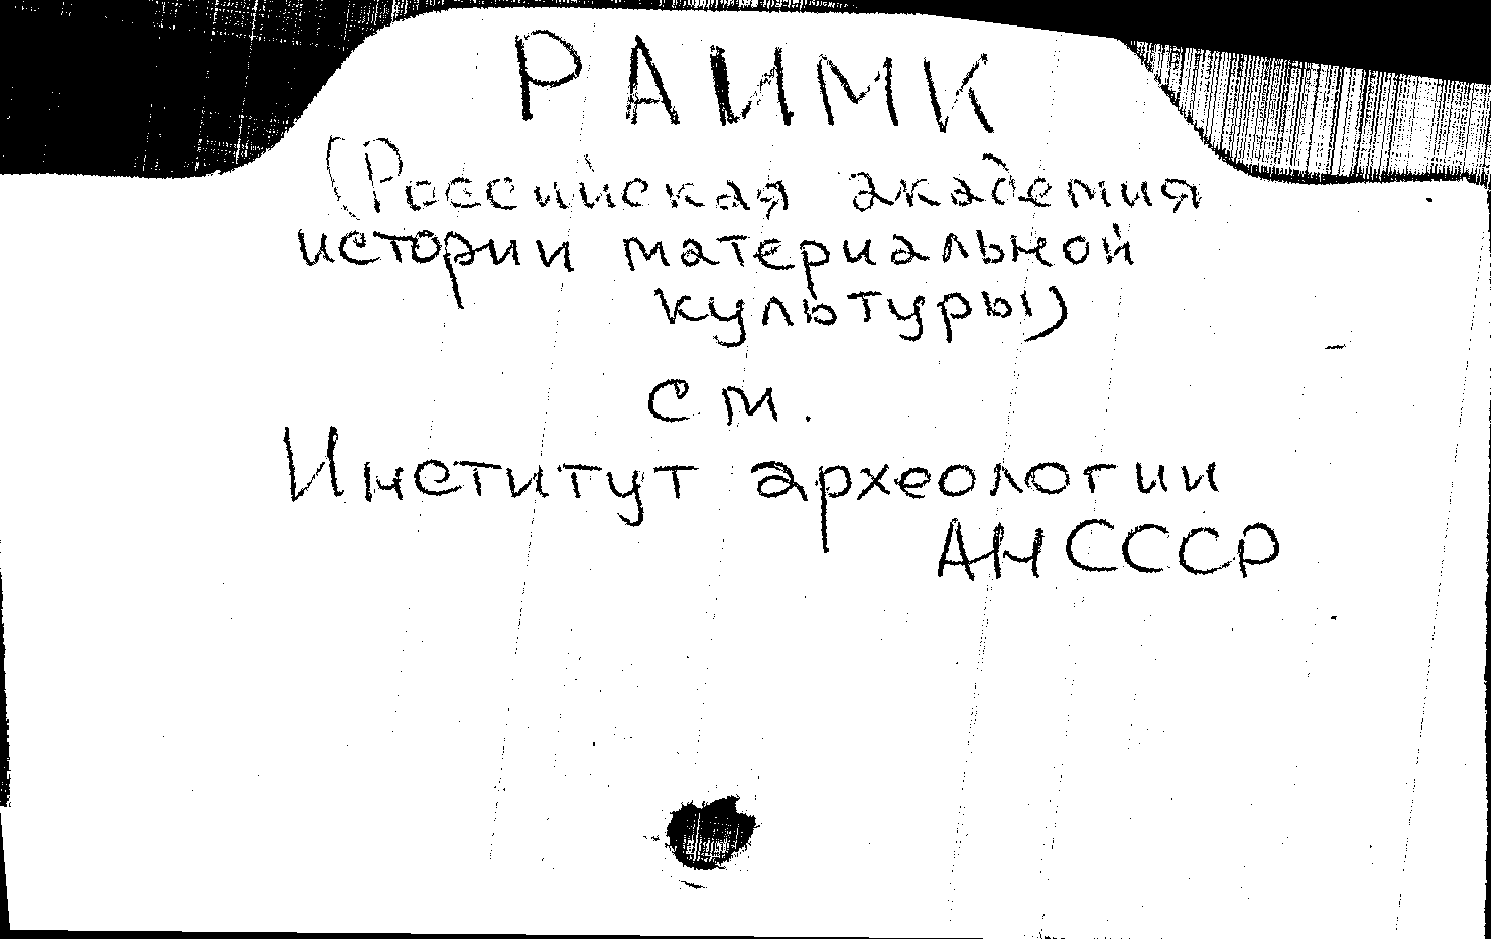 РАИМК
(Российская академия
истории материальной
культуры)
см.
Институт археологии
АН СССР